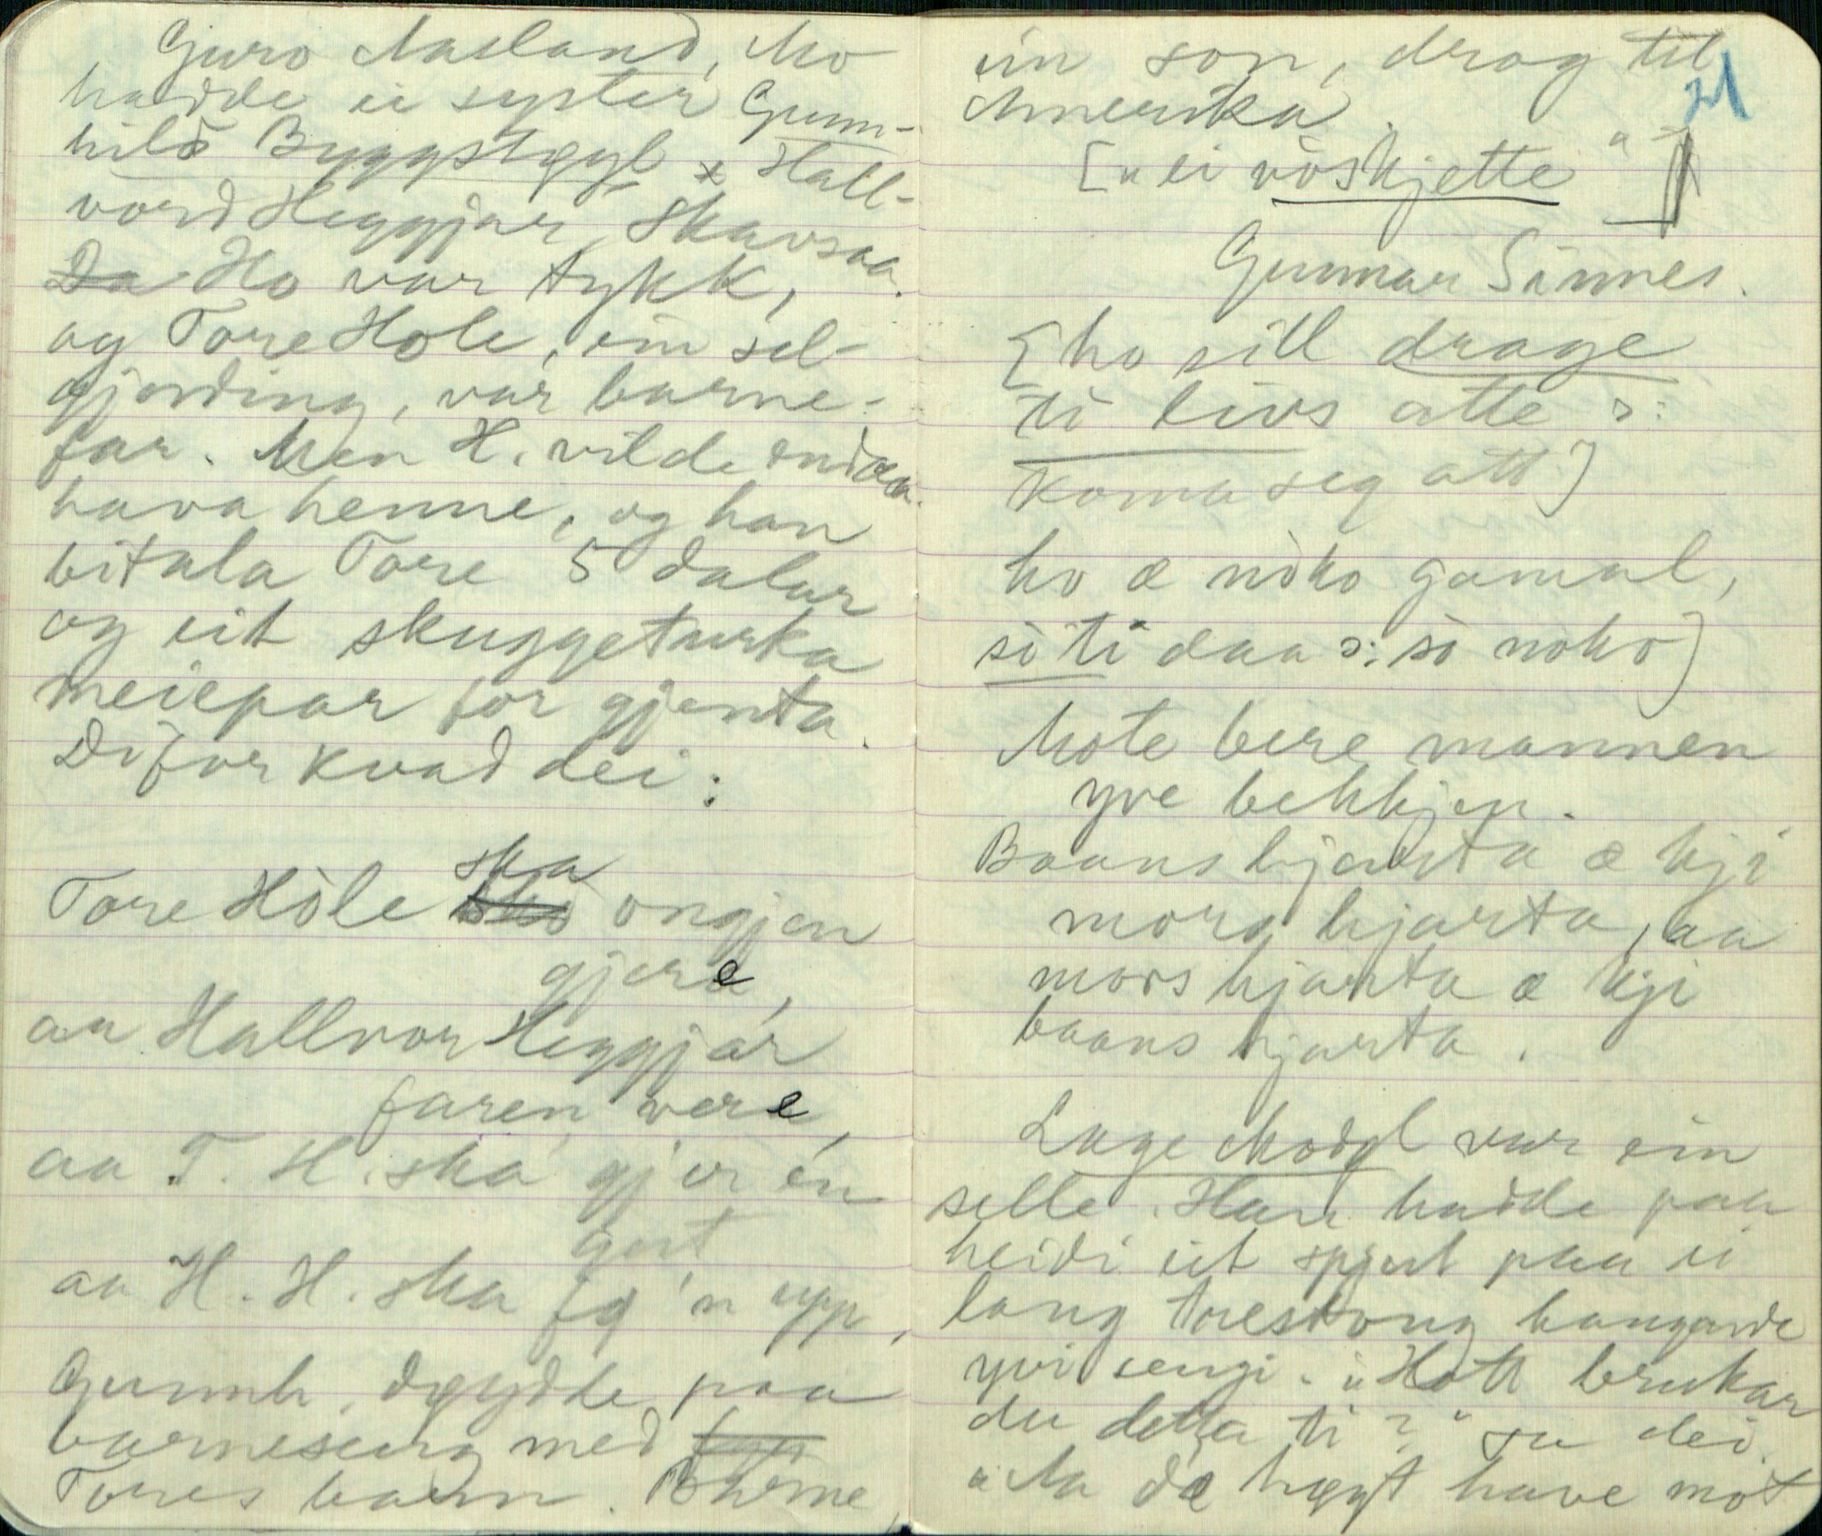 Guro Aasland, Mo
hadde ei syster Gunn-
hild Byggstøyl x Hall-
vord Heggjar, Skavsaa.
Da Ho var tykk,
og Tore Hole, ein sel-
gjording, var barne-
far. Men H. vilde endaa
hava henne, og han
bitala Tore 5 dalar
og eit skuggeturka
meiepar for gjenta.
Difor kvad dei:
Tore Hòle ska ongjen
gjere,
aa Hallvor Heggjár
faren vere,
aa T. H. ska gjer én
gort
aa H. H. ska fø 'n upp,
Gunnh. døydde paa
barneseng med
Tores barn. Borne,
ein son, drog til
Amerika.
[„ei vòskjette"
Gunnar Sinnes.
[ho sill drage
ti livs atte ɔ:
koma seg att]
ho æ nòko gamal,
sò ti daa ɔ: so noko]
Mote bere mannen
yve bekkjen.
Baans hjarta æ kji
mors hjarta, aa
mors hjarta æ kji
baans hjarta.
Lage Modøl var ein
selle. Han hadde paa
heidi eit spjut paa ei
lang trestong hangande
yvi sengi. „Hott brukar
du detta ti?" sa dei.
„Aa dæ høgt have mot